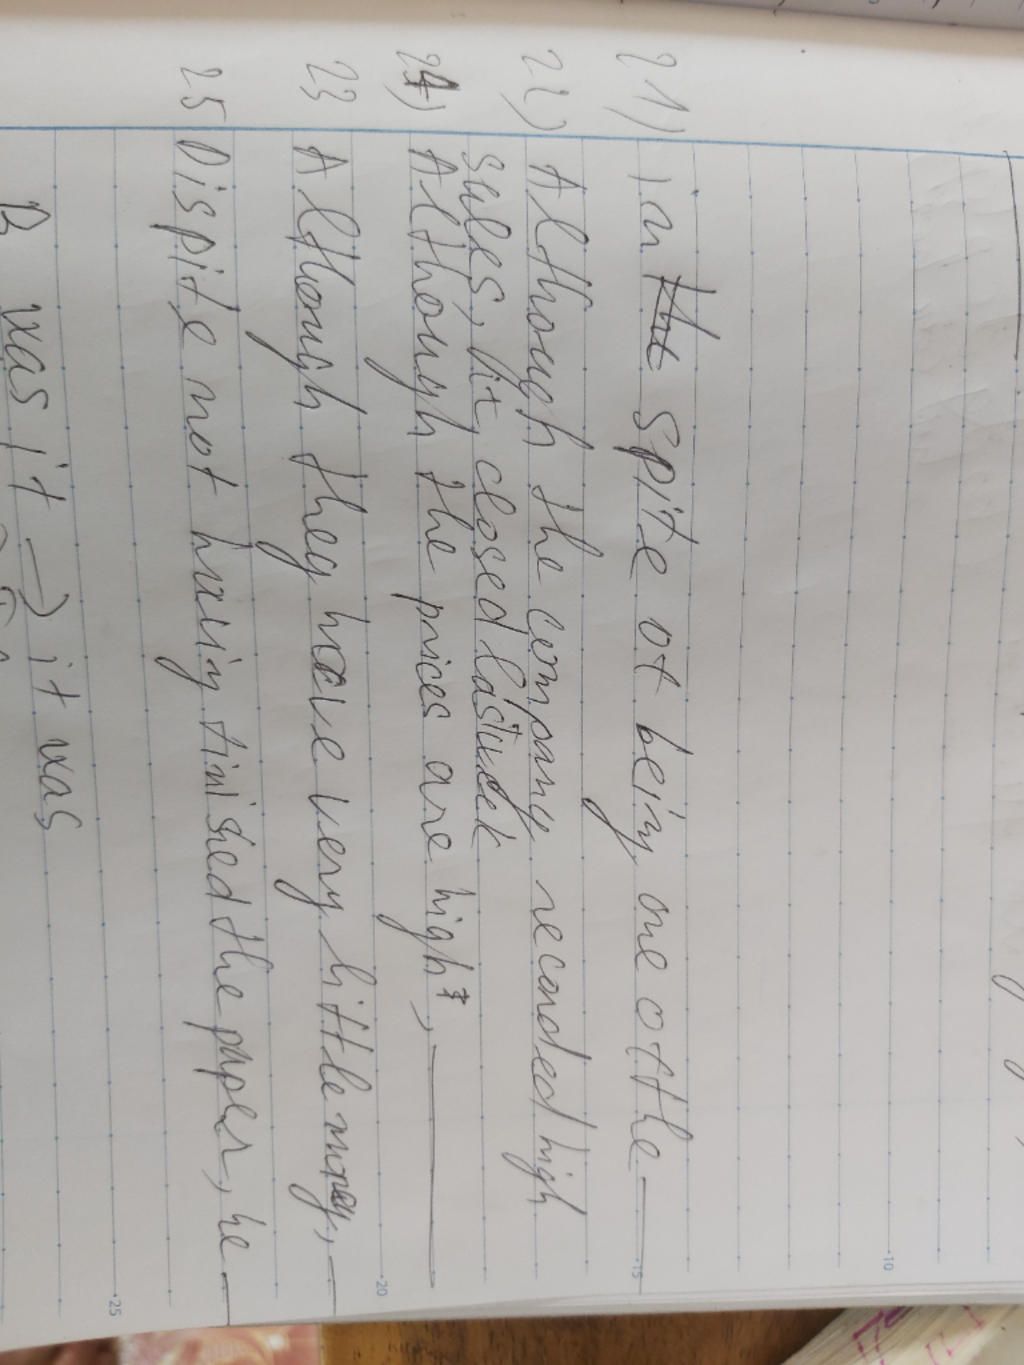 21) in spite of being one of the
22) Although the company recorded high
sales, it closed last week
24) Although the prices are high,
23 Although they have very little money,
25 Dispite not having finished the paper, he
B was it → it was
15
20
25
10